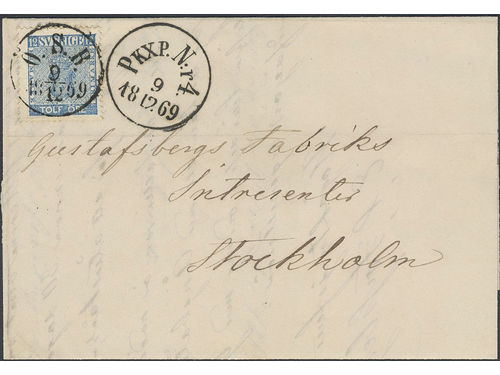 12 SVERIGE
TOLF ÖRE
O.S.B.
9
12
PKXP. Nr 4.
9
18 12 69
Gustafsbergs Fabriks
Intressenter
Stockholm